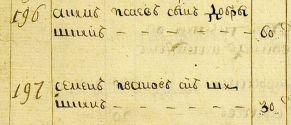 196 акимъ исаевъ сынъ добры
шкинъ - - - - - 60
197 семенъ ивановъ снъ
шкинъ - - - - - - 30